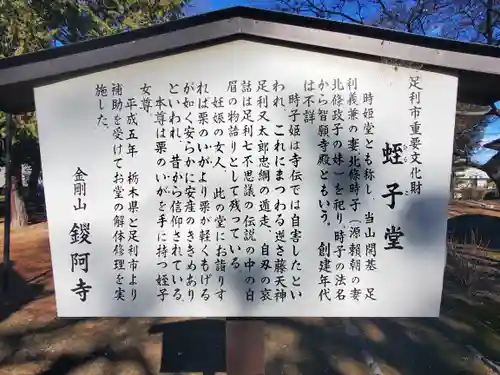 足利市重要文化財
蛭子堂
時姫堂とも称し、当山開基 足
利義兼の妻北條時子（源頼朝の妻
北條政子の妹）を祀り、時子の法名
から智願寺殿ともいう。創建年代
は不詳。
時子姫は寺伝では自害したとい
われ、これにまつわる逆さ藤天神
足利又太郎忠綱の遁走、自刃の哀
話は足利七不思議の伝説の中の白
眉の物語りとして残っている。
妊娠の女人、此の堂にお詣りす
れば栗のいがより栗が軽くもげる
が如く安産するとのききめあり
といわれ、昔から信仰されている。
本尊は栗のいがを手に持つ蛭子
女尊。
平成五年、栃木県と足利市より
補助を受けてお堂の解体修理を実
施した。
金剛山 鑁阿寺